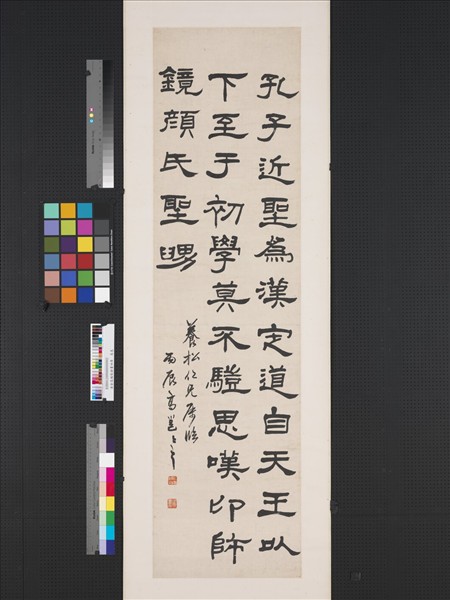 孔子近聖為漢定道自天王以
下至于初學莫不思嘆卬師
鏡顏氏聖舅
養松仁兄屬臨
丙辰高邕之